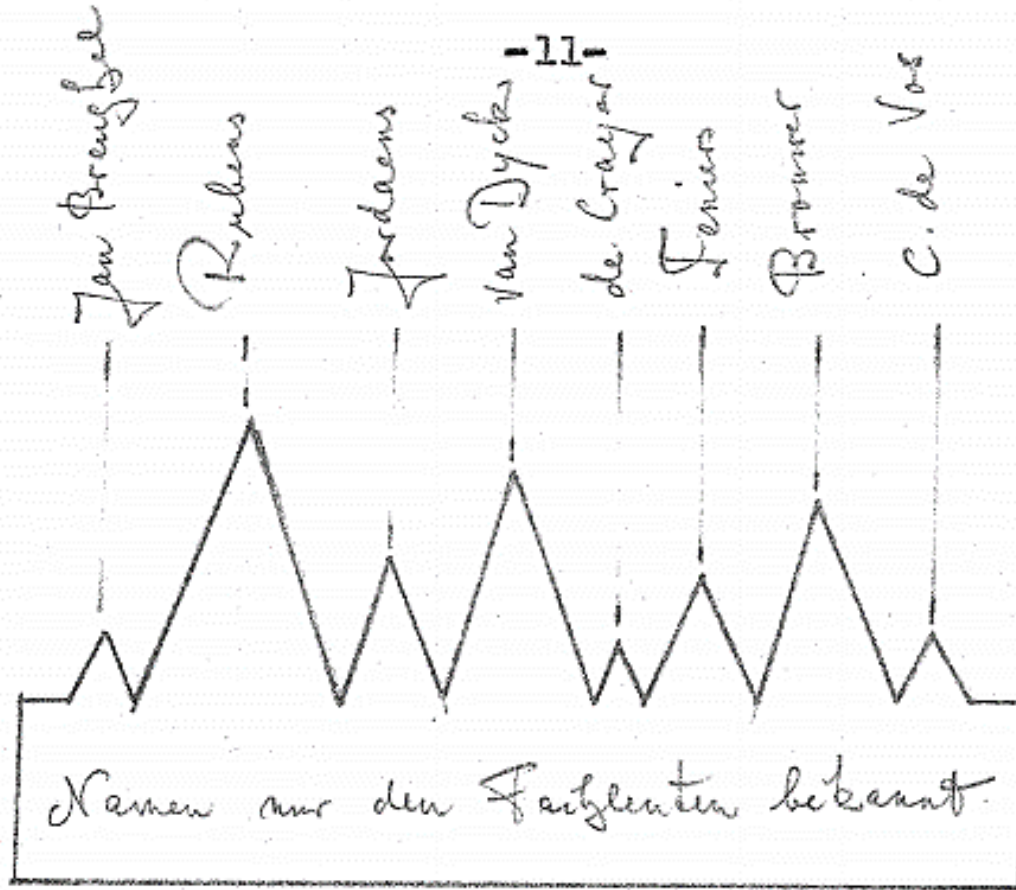 -11-
Jan Breughel
Rubens
Jordaens
Van Dyck
de Crayer
Teniers
Brouwer
C. de Vos
Namen nur den Fachleuten bekannt